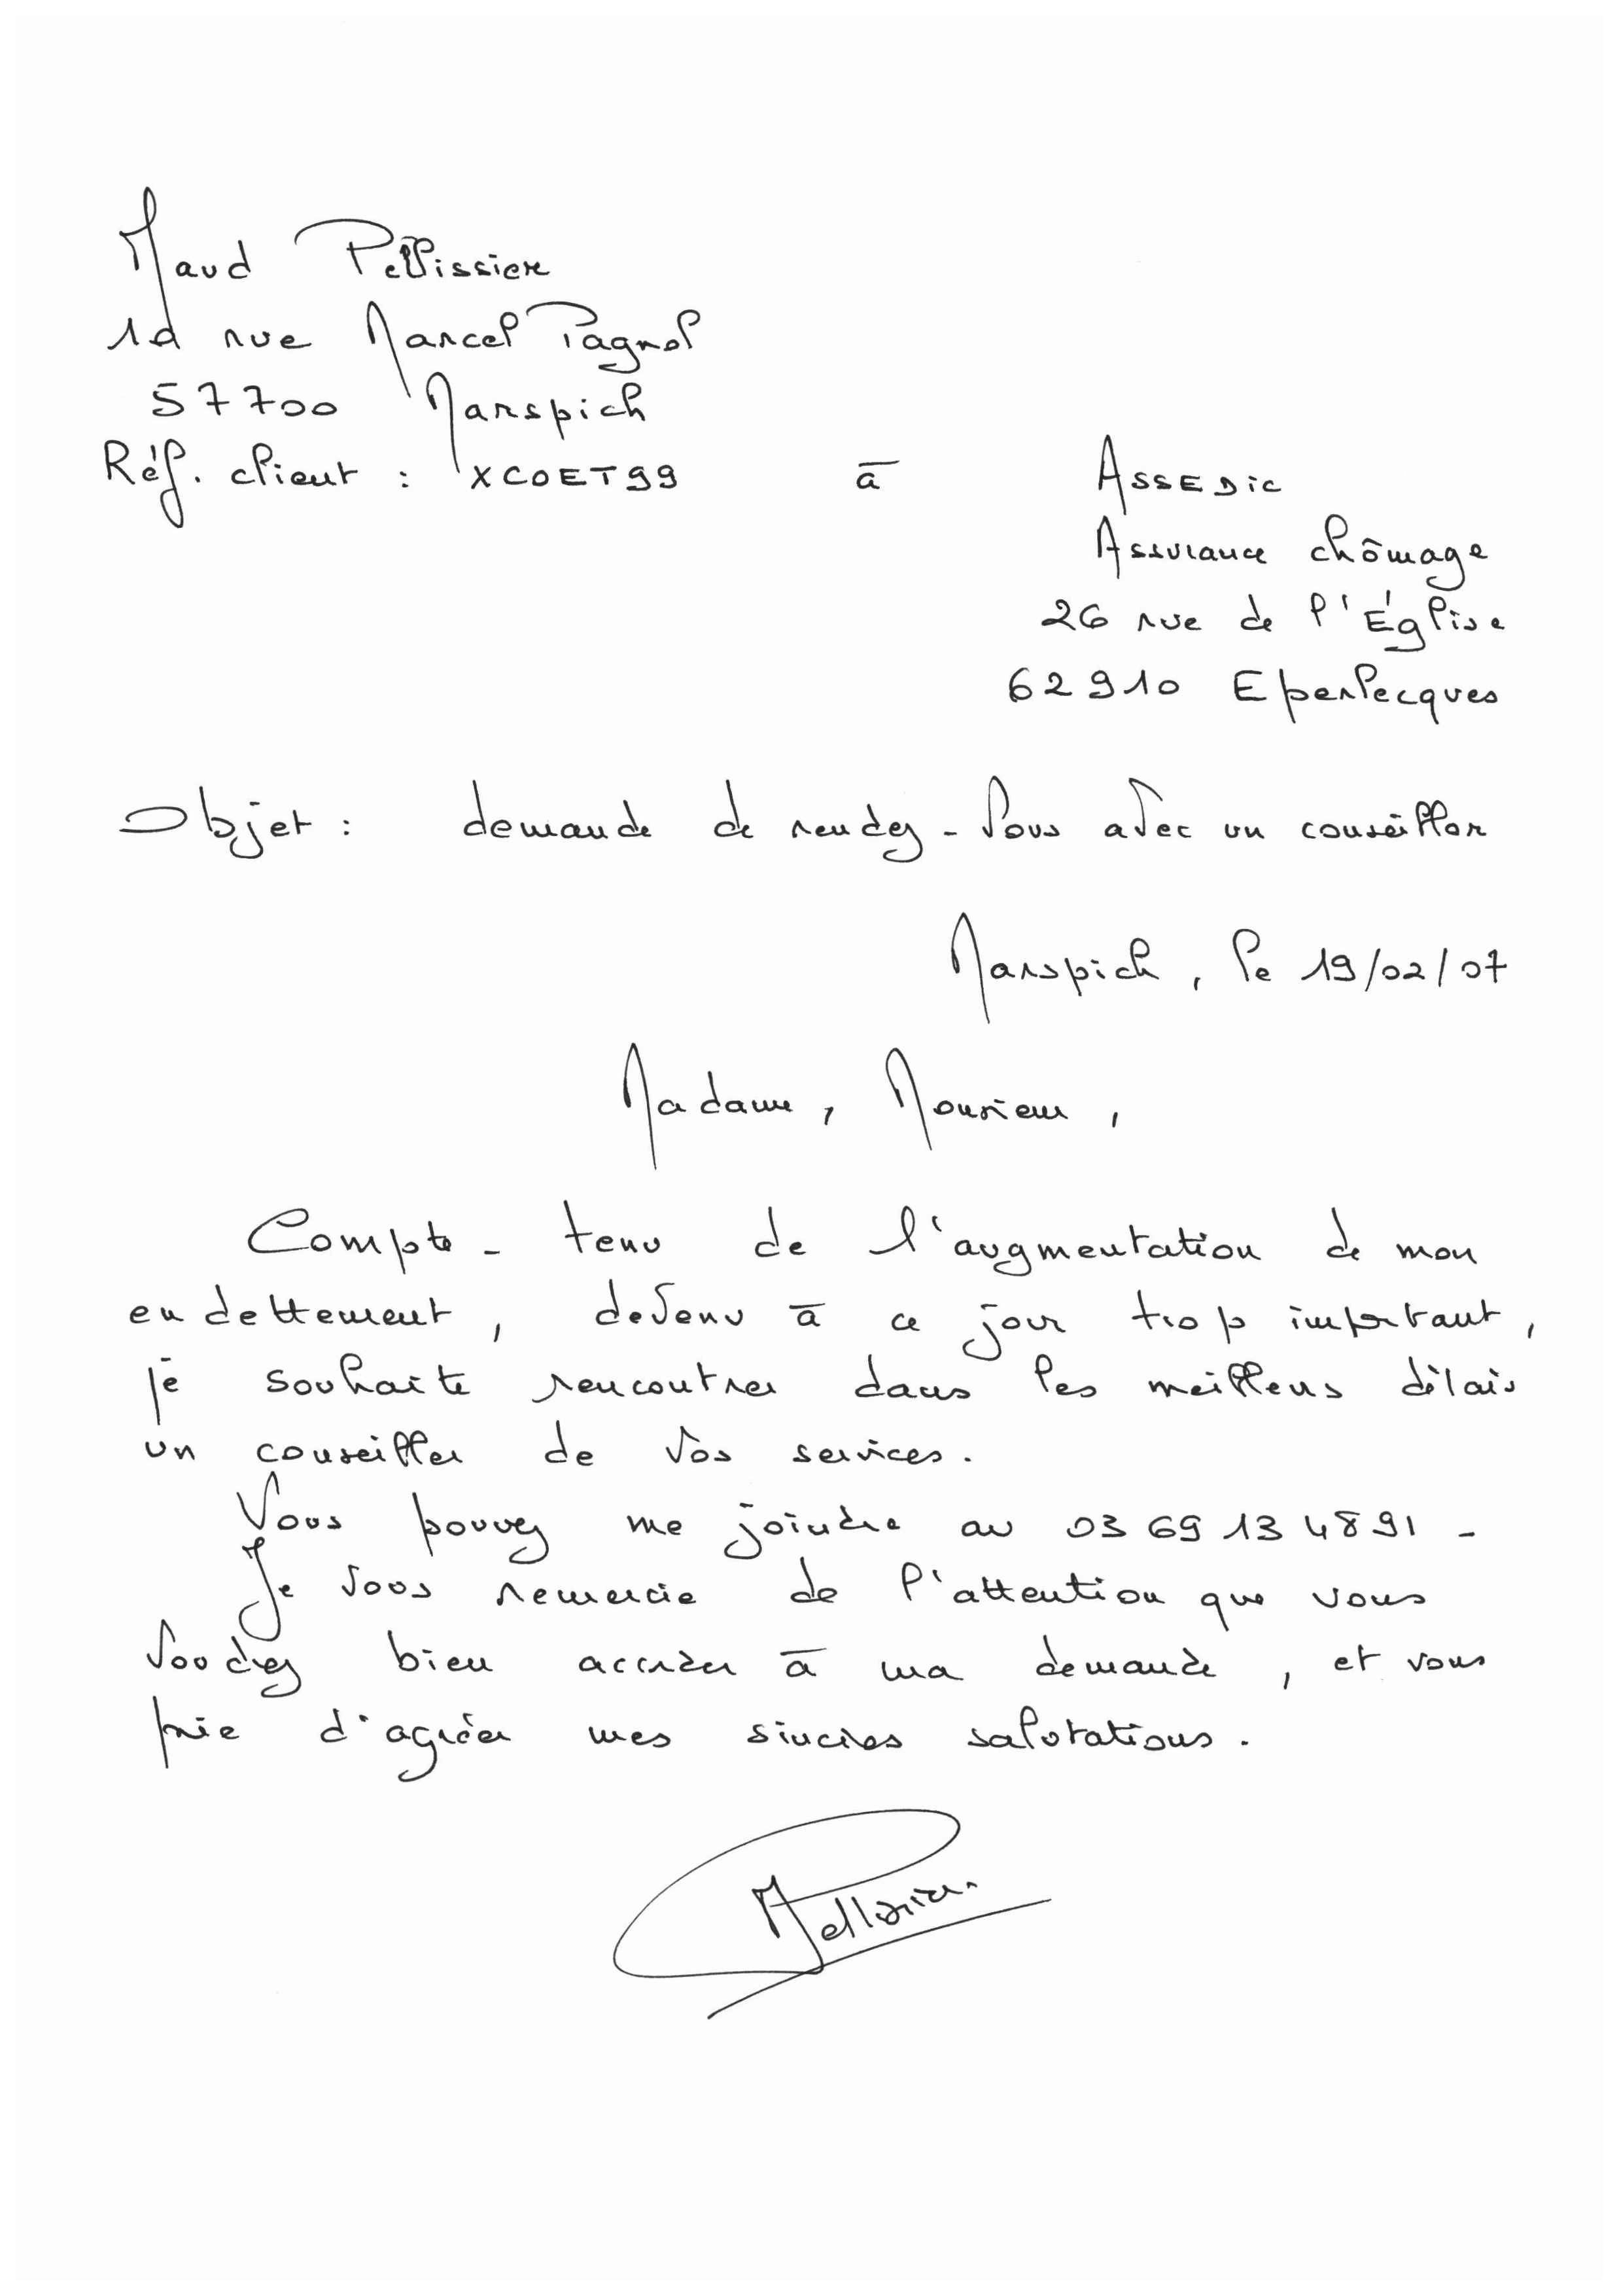 Maud Pellissier
1d rue Marcel Pagnol
57700 Marspich
Réf. client : XCOET99 à
ASSEDic
Assurance chômage
26 rue de l'Église
62910 Eperlecques
Objet : demande de rendez-vous avec un conseiller
Marspich, le 19/02/07
Madame, Monsieur,
Compte-tenu de l'augmentation de mon
endettement, devenu à ce jour trop important,
je souhaite rencontrer dans les meilleurs délais
un conseiller de vos services.
Vous pouvez me joindre au 03 69 13 48 91 -
Je vous remercie de l'attention que vous
voudrez bien accorder à ma demande, et vous
prie d'agréer mes sincères salutations.
Pellissier